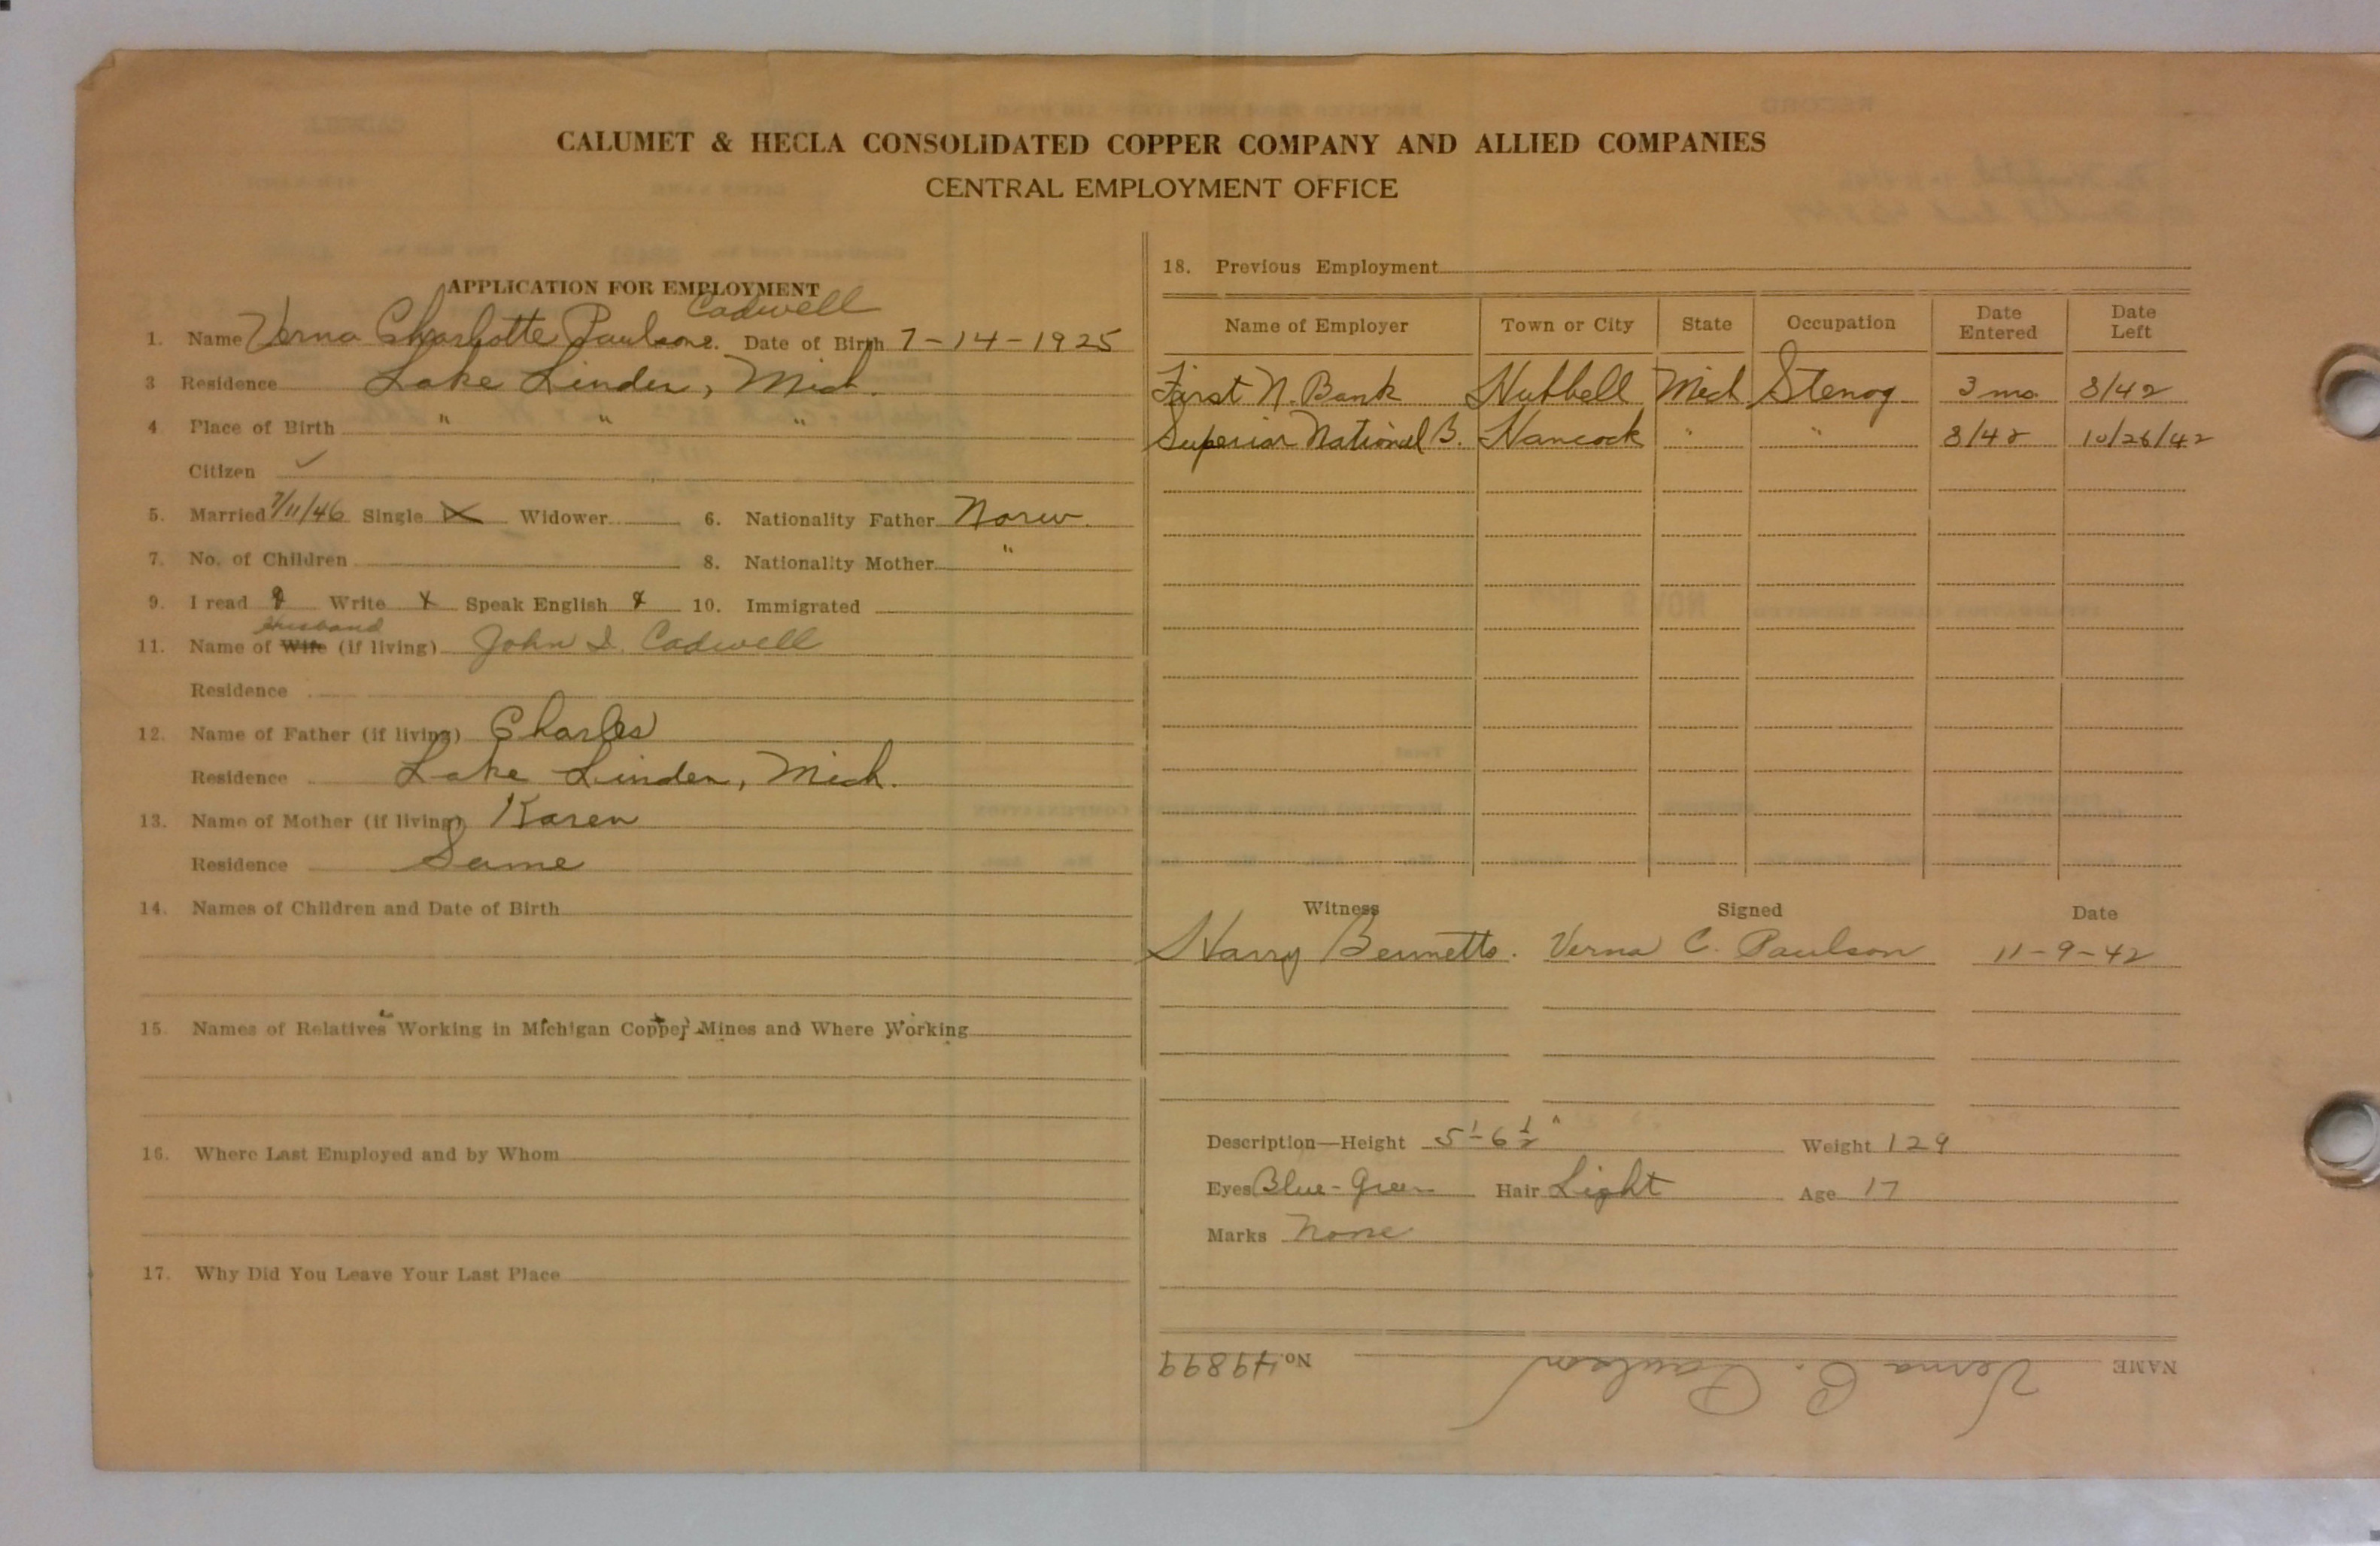 CALUMET & HECLA CONSOLIDATED COPPER COMPANY AND ALLIED COMPANIES
CENTRAL EMPLOYMENT OFFICE
APPLICATION FOR EMPLOYMENT
Cadwell
1. Name Verna Charlotte Paulson 2. Date of Birth 7-14-1925
3 Residence Lake Linden, Mich.
4 Place of Birth " " "
Citizen ✓
5. Married 7/11/46 Single X Widower 6. Nationality Father Norw.
7. No. of Children 8. Nationality Mother "
9. I read X Write X Speak English X 10. Immigrated
Husband
11. Name of Wife (if living) John I. Cadwell
Residence
12. Name of Father (if living) Charles
Residence Lake Linden, Mich.
13. Name of Mother (if living) Karen
Residence Same
14. Names of Children and Date of Birth
15. Names of Relatives Working in Michigan Copper Mines and Where Working
16. Where Last Employed and by Whom
17. Why Did You Leave Your Last Place
18. Previous Employment
Name of Employer Town or City State Occupation Date Entered Date Left
First N. Bank Hubbell Mich Stenog 3 mo. 8/42
Superior National B. Hancock " " 8/42 10/26/42
Witness Signed Date
Harry Bennetts. Verna C. Paulson 11-9-42
Description—Height 5'-6 1/2" Weight 129
Eyes Blue-Green Hair Light Age 17
Marks None
NAME Verna C. Paulson No. 49899